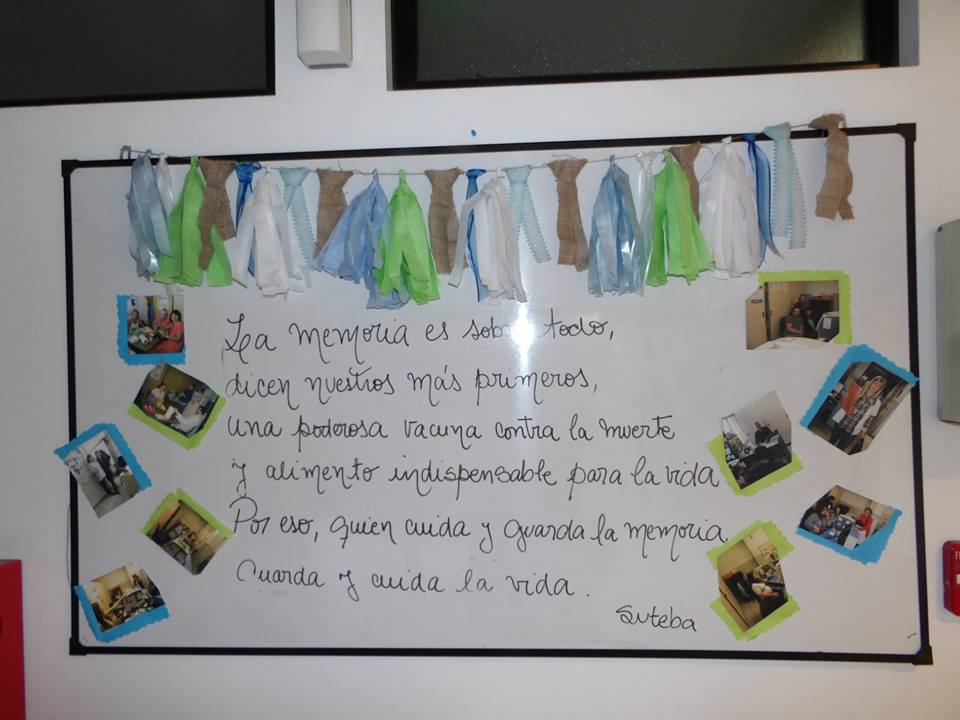 La memoria es sobre todo,
dicen nuestros más primeros,
una poderosa vacuna contra la muerte
y alimento indispensable para la vida
Por eso, quien cuida y guarda la memoria
Guarda y cuida la vida.
Suteba